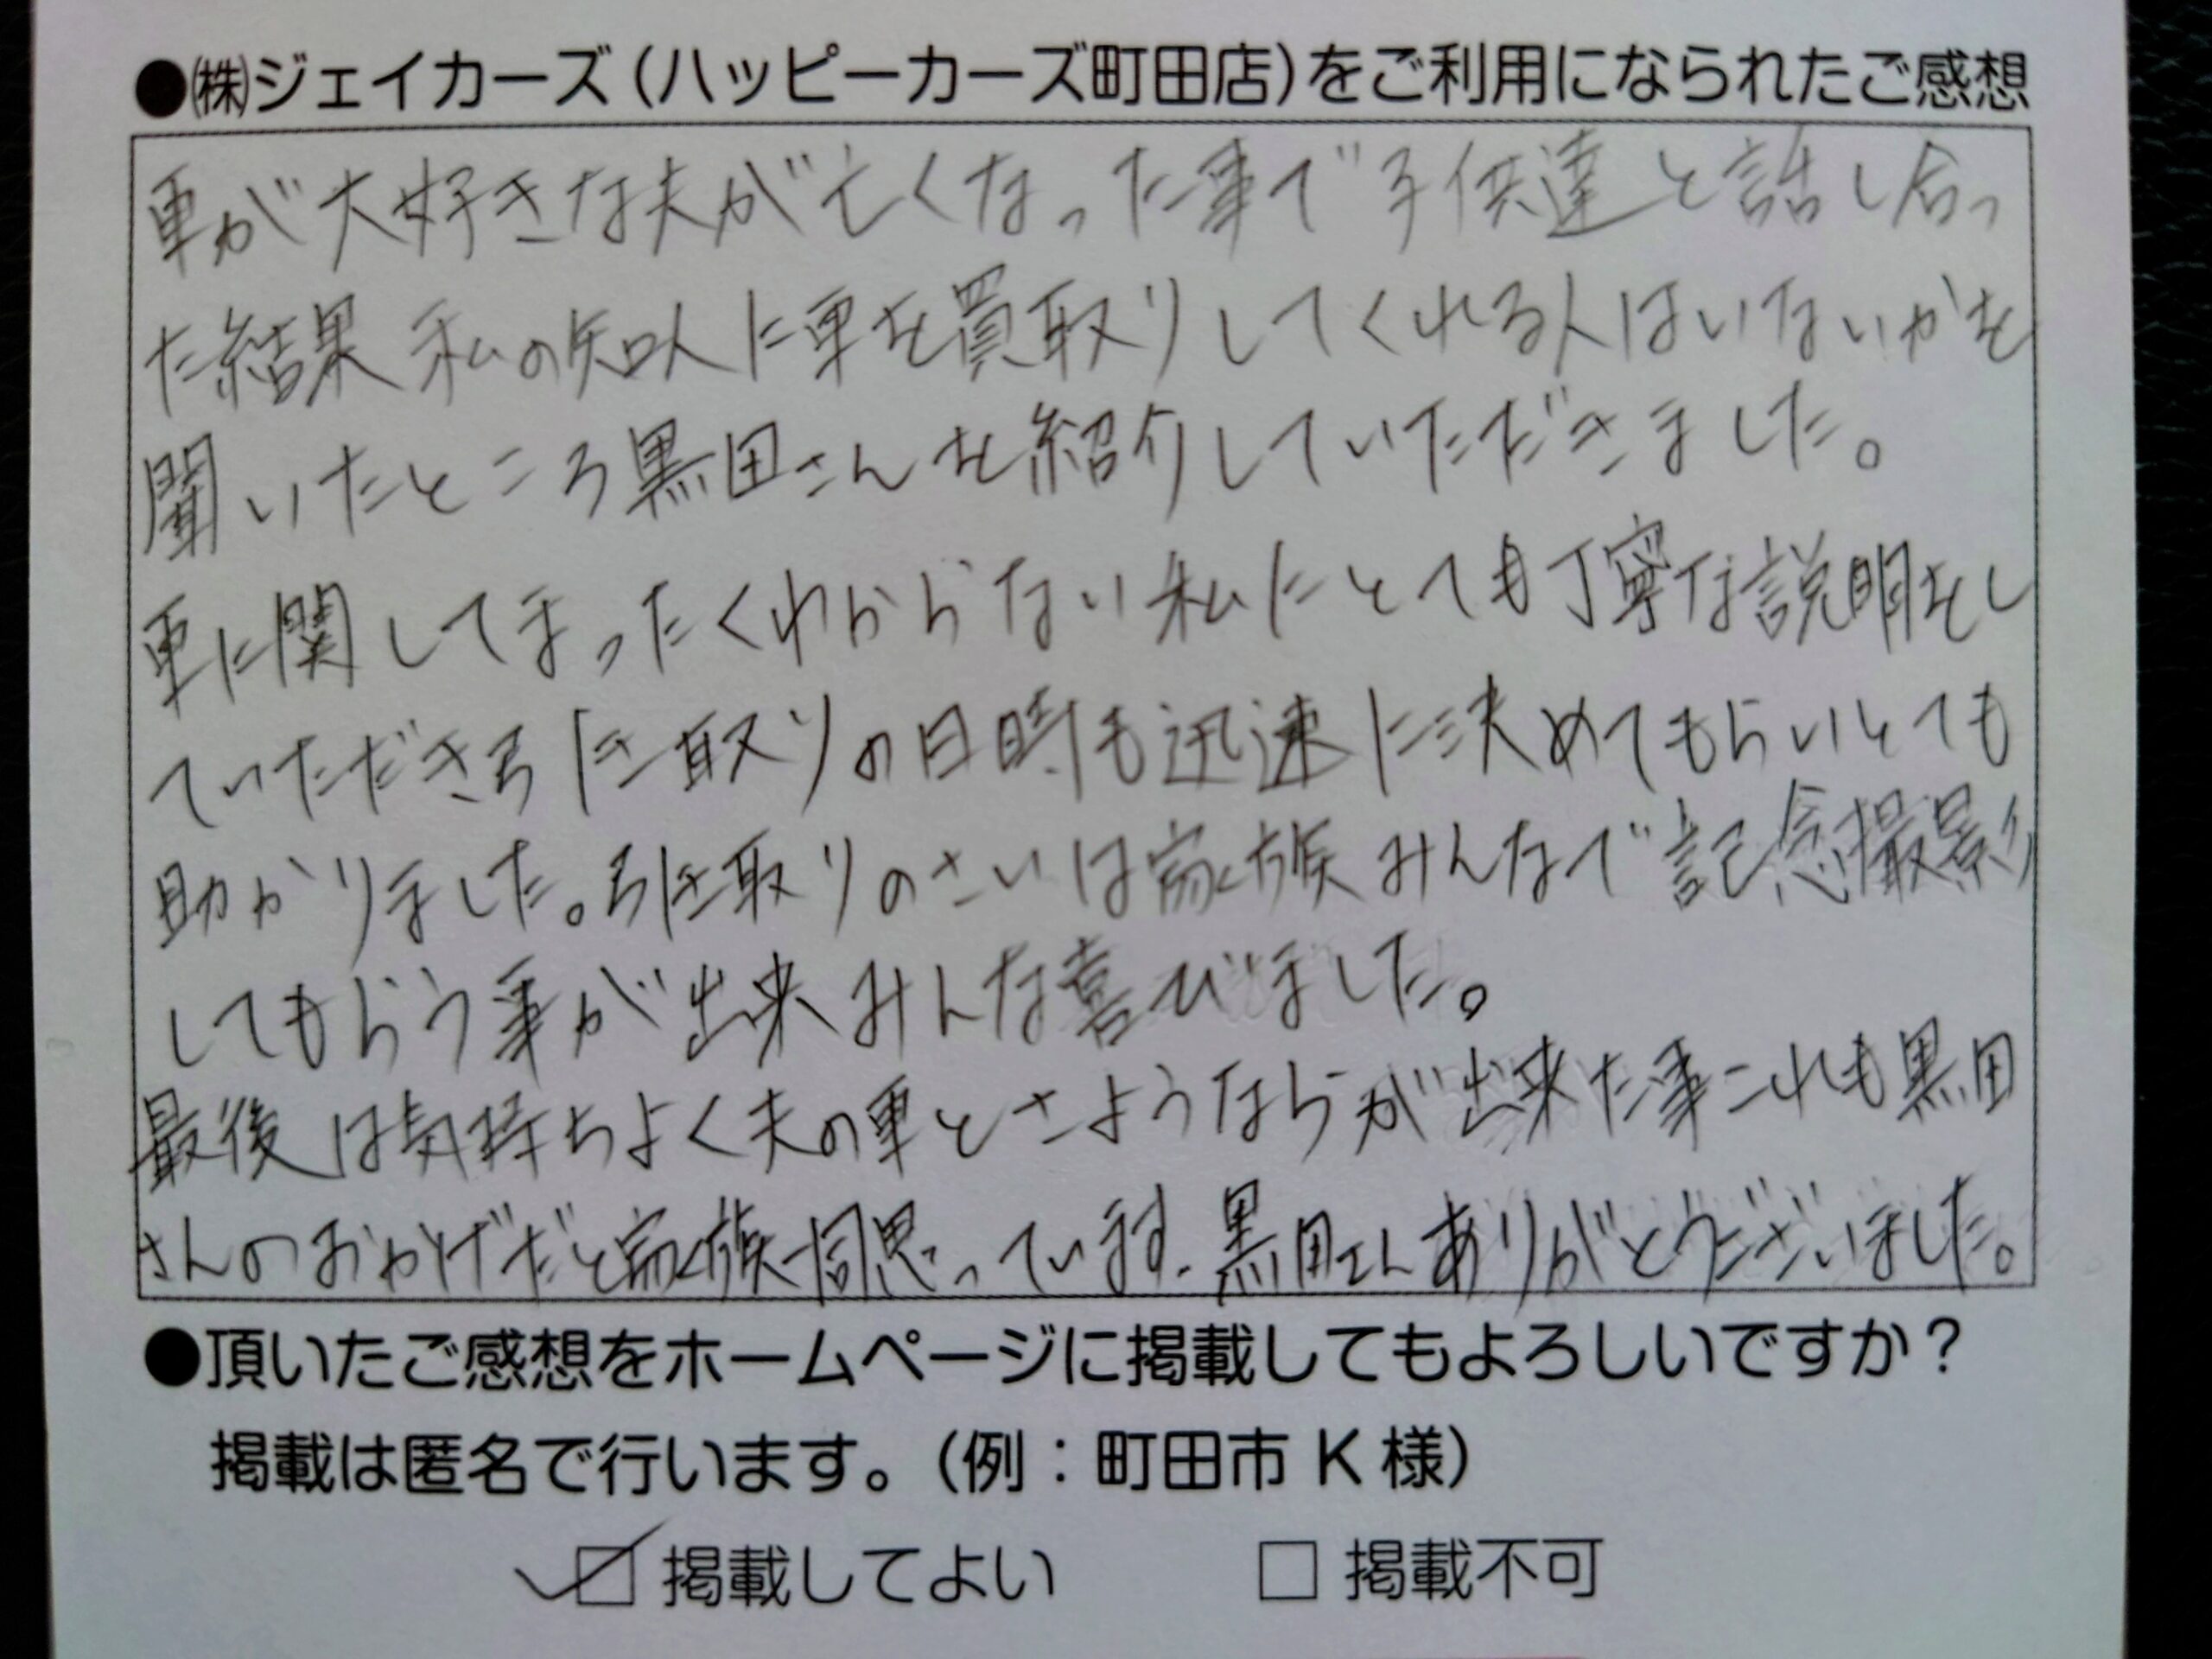 ●㈱ジェイカーズ（ハッピーカーズ町田店）をご利用になられたご感想
車が大好きな夫が亡くなった事で子供達と話し合っ
た結果 私の知人に車を買取りしてくれる人はいないかを
聞いたところ黒田さんを紹介していただきました。
車に関してまったくわからない私にとても丁寧な説明をし
ていただき引き取りの日時も迅速に決めてもらいとても
助かりました。引き取りのさいは家族みんなで記念撮影
してもらう事が出来みんな喜びました。
最後は気持ちよく夫の車とさようならが出来た事これも黒田
さんのおかげだと家族一同思っています、黒田さんありがとうございました。
●頂いたご感想をホームページに掲載してもよろしいですか？
掲載は匿名で行います。（例：町田市 K 様）
☑ 掲載してよい □ 掲載不可